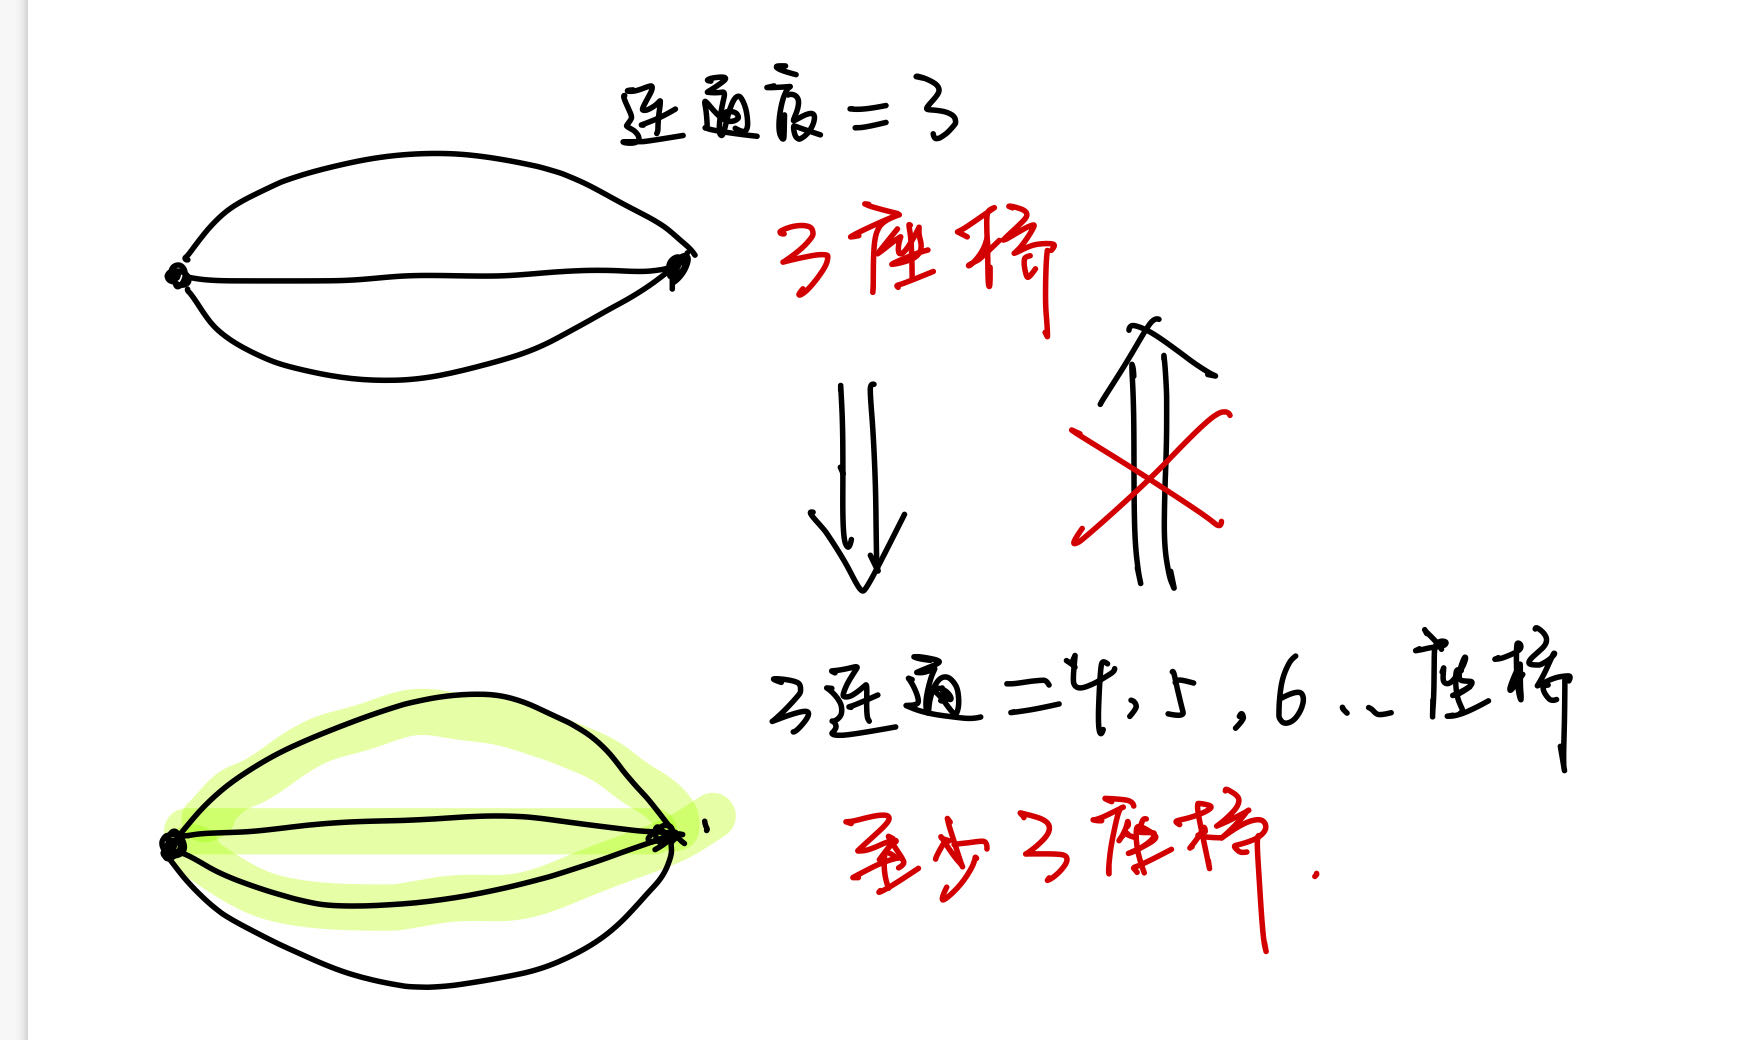 连通度=3
3座桥
3连通=4,5,6…座桥
至少3座桥.